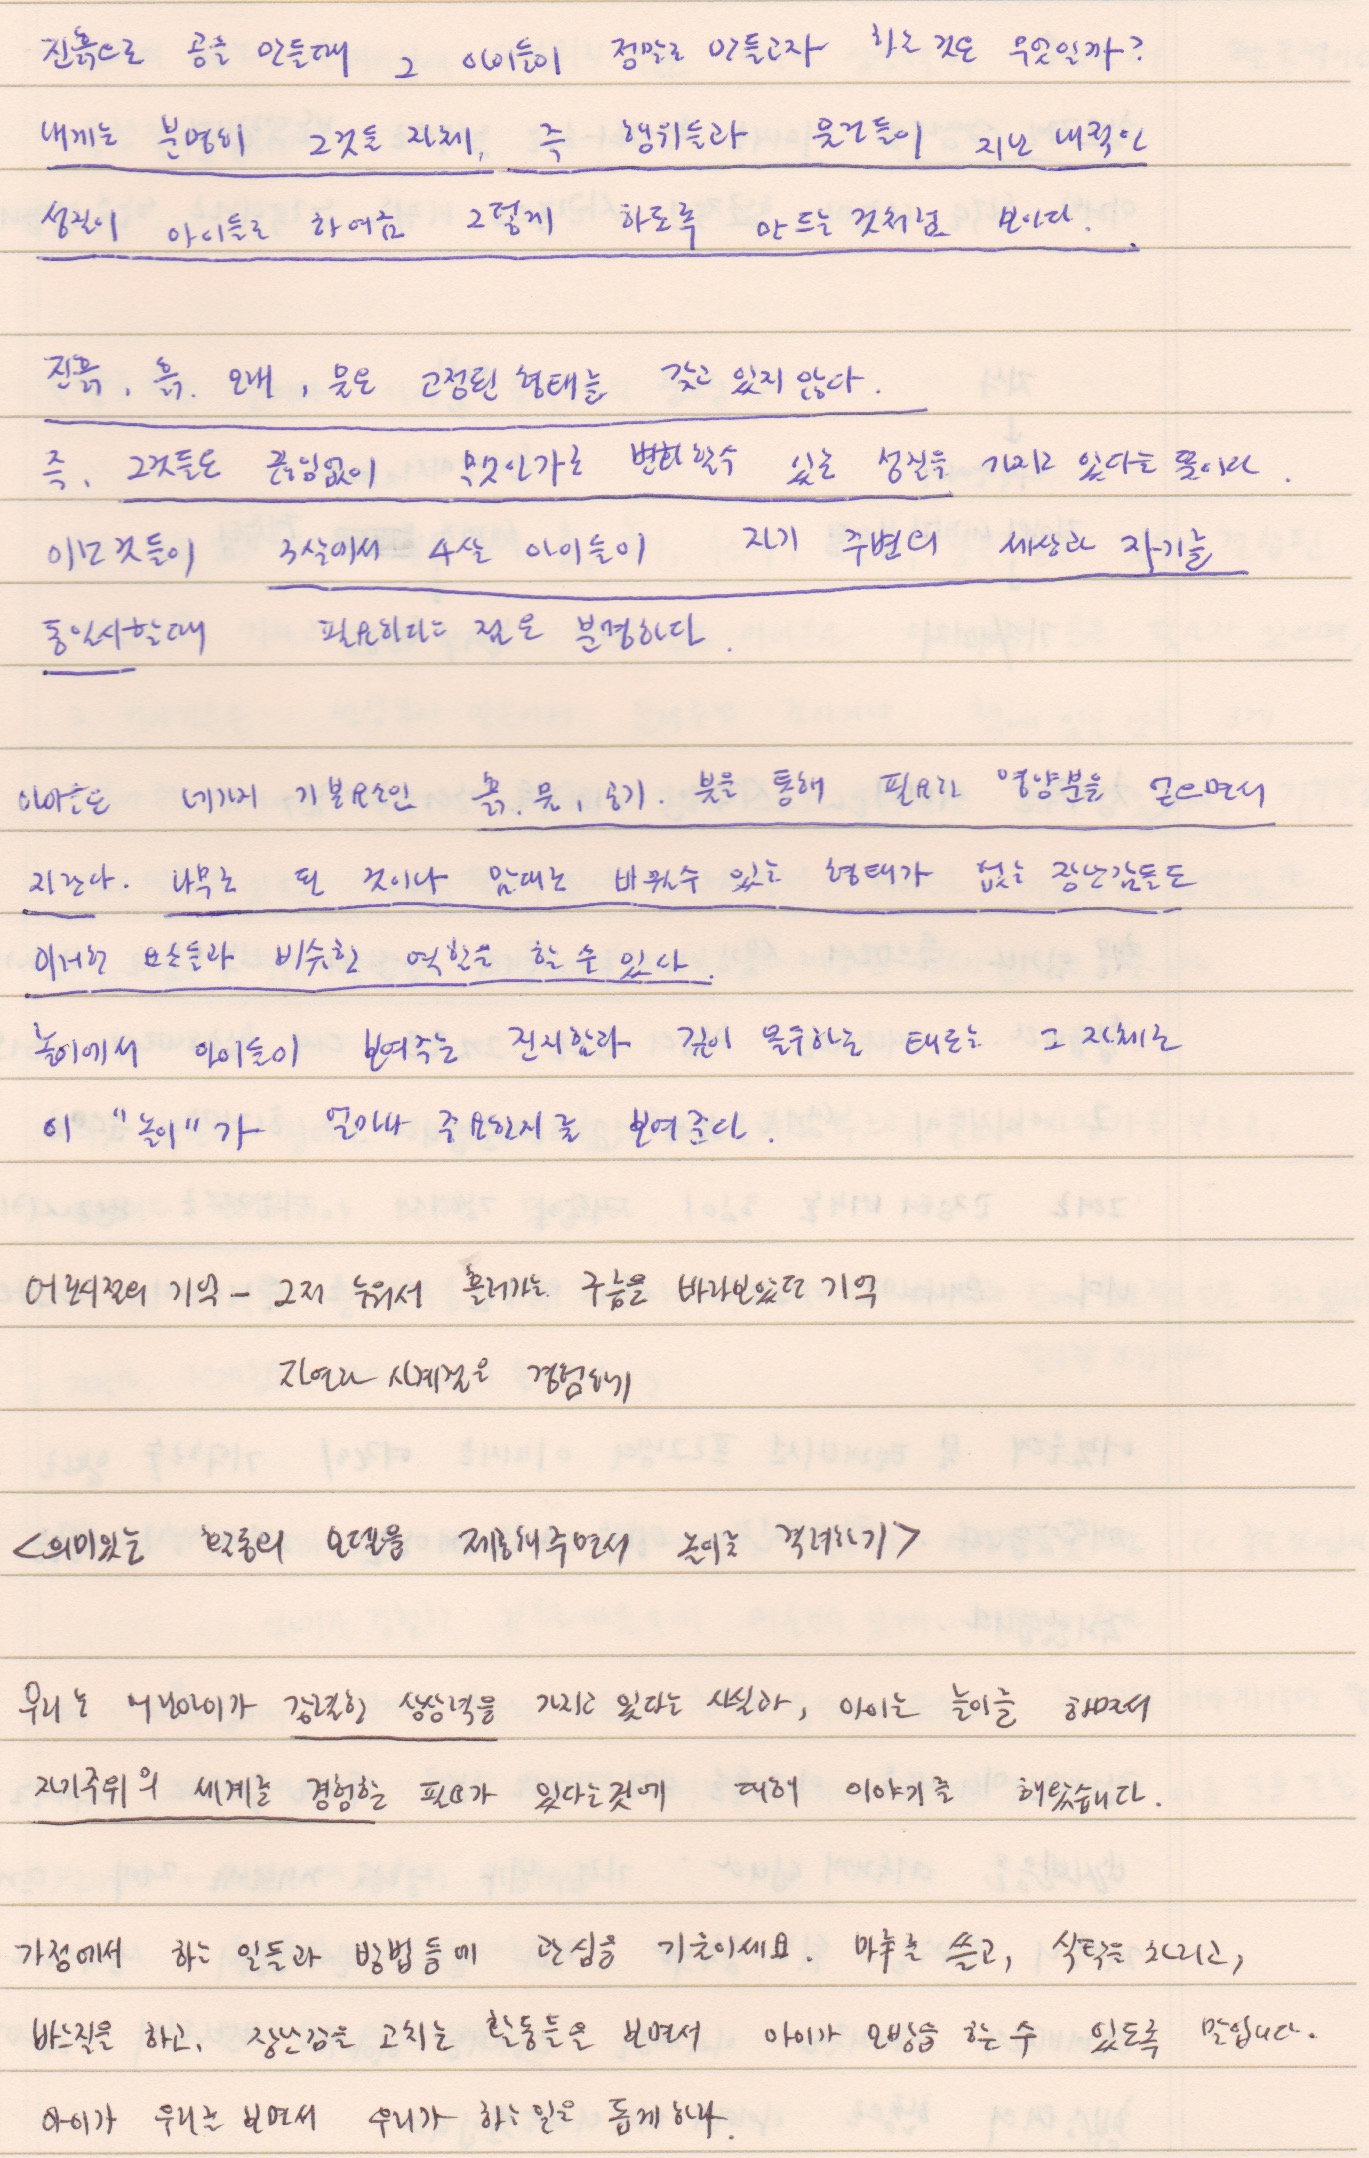 진흙으로 공을 만들때 그 아이들이 정말로 만들고자 하는 것은 무엇일까?
내게는 분명히 그것들 자체, 즉 행위들과 물건들이 지닌 내적인
성질이 아이들로 하여금 그렇게 하도록 만드는 것처럼 보인다.
진흙, 흙. 모래, 물은 고정된 형태를 갖고 있지 않다.
즉, 그것들은 끊임없이 무엇인가로 변화할수 있는 성질을 가지고 있다는 뜻이다.
이런것들이 3살에서 4살 아이들이 자기 주변의 세상과 자기를
동일시할때 필요하다는 점은 분명하다.
아이들은 네가지 기본요소인 흙, 물, 공기. 불을 통해 필요한 영양분을 얻으면서
자란다. 나무로 된 것이나 맘대로 바뀔수 있는 형태가 없는 장난감들도
이러한 요소들과 비슷한 역할을 할 수 있다.
놀이에서 아이들이 보여주는 진지함과 깊이 몰두하는 태도는 그 자체로
이 "놀이"가 얼마나 중요한지를 보여준다.
어린시절의 기억 - 그저 누워서 흘러가는 구름을 바라보았던 기억
자연과 사계절을 경험하기
<의미있는 활동의 모델을 제공해주면서 놀이를 격려하기>
우리는 어린아이가 강렬한 상상력을 가지고 있다는 사실과, 아이는 놀이를 하면서
자기주위의 세계를 경험할 필요가 있다는것에 대해 이야기를 해왔습니다.
가정에서 하는 일들과 방법들에 관심을 기울이세요. 마루를 쓸고, 식탁을 차리고,
바느질을 하고, 장난감을 고치는 활동들을 보면서 아이가 모방을 할 수 있도록 말입니다.
아이가 우리를 보면서 우리가 하는일을 돕게하라.